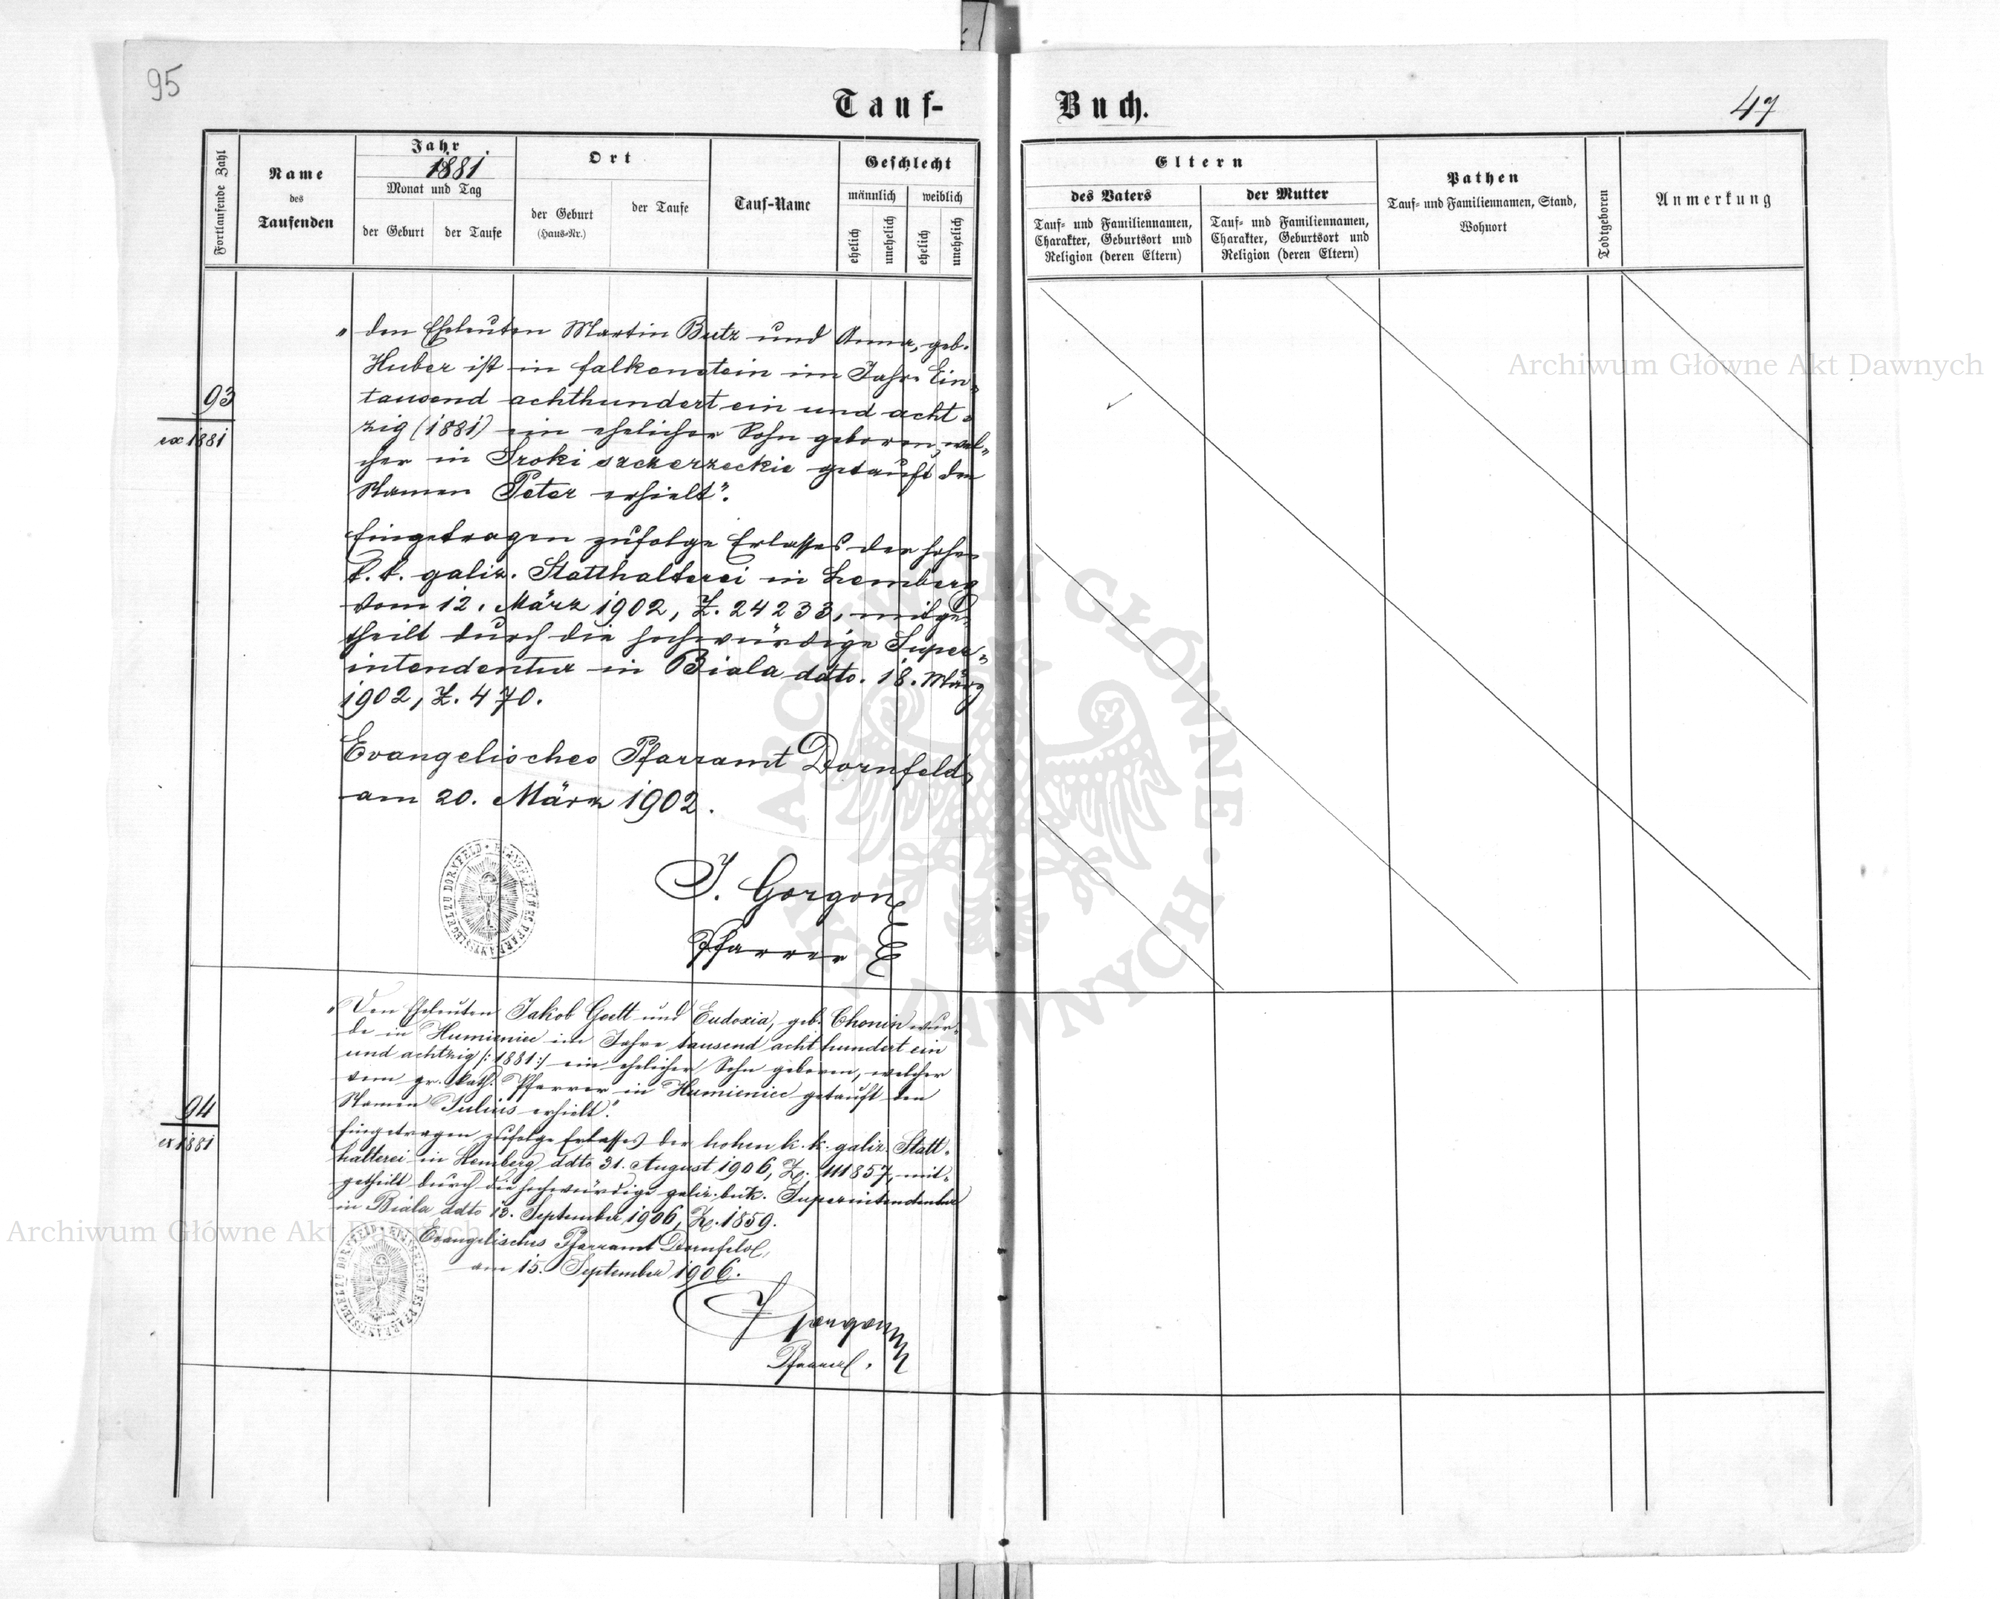 95
Tauf-
Buch.
47
Fortlaufende Zahl
Name
des
Taufenden
Jahr
1881.
Monat und Tag
der Geburt
der Taufe
Ort
der Geburt
(Haus-Nr.)
der Taufe
Tauf-Name
Geschlecht
männlich
weiblich
ehelich
unehelich
ehelich
unehelich
Eltern
des Vaters
Tauf- und Familiennamen,
Charakter, Geburtsort und
Religion (deren Eltern)
der Mutter
Tauf- und Familiennamen,
Charakter, Geburtsort und
Religion (deren Eltern)
Pathen
Tauf- und Familiennamen, Stand,
Wohnort
Todtgeboren
Anmerkung
93
ex 1881
"Den Eheleuten Martin Butz und Anna, geb.
Huber ist in Falkenstein im Jahre Ein-
tausend achthundert ein und acht-
zig (1881) ein ehelicher Sohn geboren, wel-
cher in Sroki szczerzeckie getauft den
Namen Peter erhielt".
Eingetragen zufolge Erlasses der hohen
k. k. galiz. Statthalterei in Lemberg
vom 12. März 1902, Z. 24233, mitge-
theilt durch die hochwürdige Super-
intendentur in Biala ddto. 18. März
1902, Z. 470.
Evangelisches Pfarramt Dornfeld,
am 20. März 1902.
EVANGELISCHES PFARRAMTSSIEGEL ZU DORNFELD
J. Gorgon
Pfarrer
94
ex 1881
"Den Eheleuten Jakob Gött und Eudoxia, geb. Chonin wur-
de in Humieniec im Jahre tausend acht hundert ein
und achtzig /:1881:/ ein ehelicher Sohn geboren, welcher
vom gr. kath. Pfarrer in Humieniec getauft den
Namen Julius erhielt."
Eingetragen zufolge Erlasses der hohen k. k. galiz. Statt-
halterei in Lemberg ddto 31. August 1906, Z. 111857, mit-
getheilt durch die hochwürdige galiz. buk. Superintendentur
in Biala ddto 12. September 1906, Z. 1859.
Evangelisches Pfarramt Dornfeld,
am 15. September 1906.
EVANGELISCHES PFARRAMTSSIEGEL ZU DORNFELD
J Gorgon
Pfarrer.
Archiwum Główne Akt Dawnych
ARCHIWUM GŁÓWNE · AKT DAWNYCH ·
Archiwum Główne Akt Dawnych